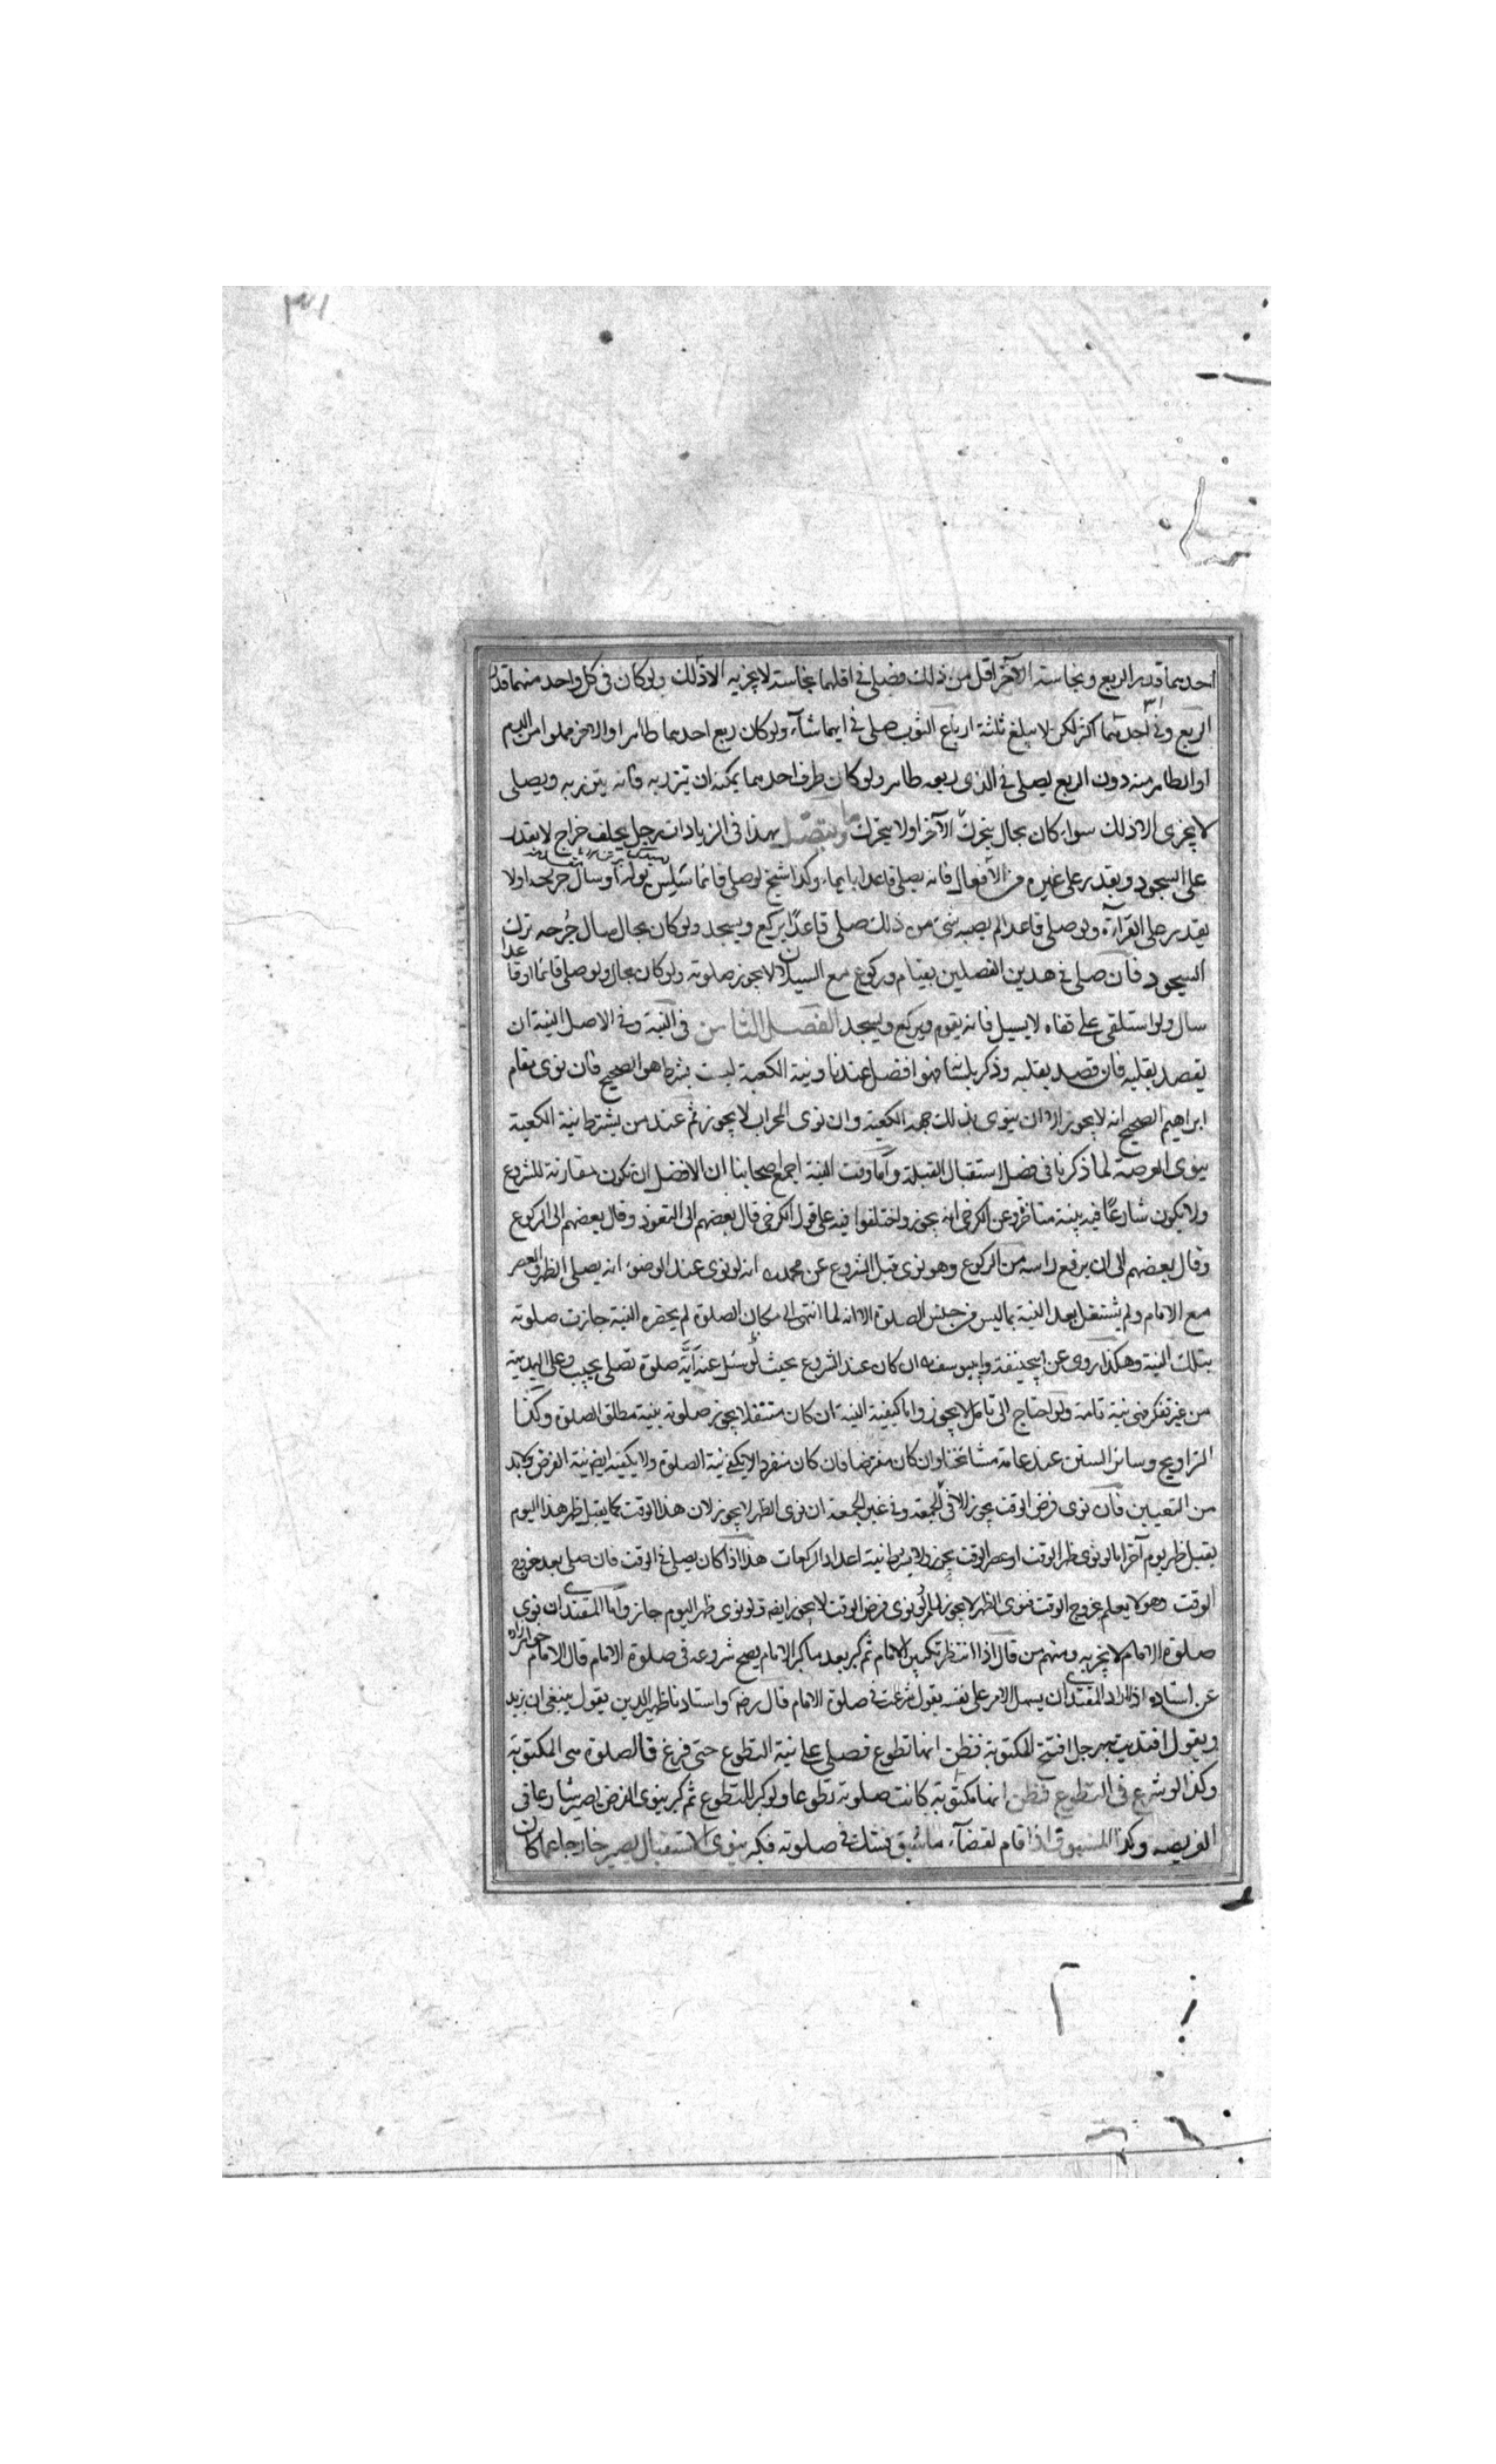 ٣١
احدهما قدر الربع ونجاسة الآخر اقل من ذلك فصلى في اقلهما نجاسة لا يجزيه الا ذلك ولو كان في كل واحد منهما قدر
الربع وفي احدهما اكثر لكن لا يبلغ ثلثة ارباع الثوب صلى في ايهما شآء ولو كان ربع احدهما طاهر او الاخر مملوا من الدم
او الطاهر منه دون الربع يصلى في الذى ربعه طاهر ولو كان طرف احدهما يمكنه ان تيزر به فانه يتزر به ويصلى
لا يجزى الا ذلك سواء كان بحال يتحرك الآخر او لا يتحرك وما يتصل بهذا في الزيادات رجل بحلقه خراج لا يقدر
على السجود ويقدر على غيره من الافعال فانه يصلى قاعدا بايماء وكذا شيخ لو صلى قائما سلس بوله او سال جرحه او لا
يقدر على القرآءة ولو صلى قاعدا لم يصبه شئ من ذلك صلى قاعدًا يركع ويسجد ولو كان بحال سال جُرحه ترك
السجود فان صلى في هذين الفصلين بقيام وركوع مع السيلان لا يجوز صلوته ولو كان بحال ولو صلى قائما او قاعدا
سال ولو استلقى على قفاه لا يسيل فانه يقوم ويركع ويسجد الفصل الثامن في النية وفي الاصل النية ان
يقصد بقلبه فان قصد بقلبه وذكر بلسانه فهو افضل عندنا ونية الكعبة ليست بشرط هو الصحيح فان نوى مقام
ابراهيم الصحيح انه لا يجوز الا ان ينوى بذلك جهة الكعبة وان نوى المحراب لا يجوز ثم عند من يشترط نية الكعبة
ينوى العرصة لما ذكرنا في فصل استقبال القبلة وأما وقت النية اجمع اصحابنا ان الافضل ان تكون مقارنة للشروع
ولا يكون شارعًا فيه بنية متأخرة وعن الكرخى انه يجوز واختلفوا فيه على قول الكرخى قال بعضهم الى التعوذ وقال بعضهم الى الركوع
وقال بعضهم الى ان يرفع راسه من الركوع وهو نوى قبل الشروع عن محمد انه لو نوى عند الوضوء انه يصلى الظهر او العصر
مع الامام ولم يشتغل بعد النية بما ليس من جنس الصلوة الا انه لما انتهى الى مكان الصلوة لم يحضره النية جازت صلوته
بتلك النية وهكذا روى عن ابيحنيفة وابيوسف ان كان عند الشروع بحيث لو سئل عنه أيّة صلوة تصلى يجيب وعلى البديهة
من غير تفكر فهى نية تامة ولو احتاج الى تامل لا يجوز واما كيفية النية ان كان متنفلا يجوز صلوته بنية مطلق الصلوة وكذا
التراويح وسائر السنن عند عامة مشائخنا وان كان مفترضا فان كان منفردا لا يكفى نية الصلوة ولا يكفيه ايضا نية الفرض ولا بد
من التعيين فان نوى فرض الوقت يجوز الا في الجمعة وفي غير الجمعة ان نوى الظهر لا يجوز لان هذا الوقت كما يقبل ظهر هذا اليوم
يقبل ظهر يوم آخر اما لو نوى ظهر الوقت او عصر الوقت يجوز ولا يشترط نية اعداد الركعات هذا اذا كان يصلى في الوقت فان صلى بعد خروج
الوقت وهو لا يعلم بخروج الوقت فنوى الظهر لا يجوز لو نوى فرض الوقت لا يجوز ايضا ولو نوى ظهر اليوم جاز واما المقتدى ان نوى
صلوة الامام لا يجزيه ومنهم من قال اذا انتظر تكبير الامام ثم كبر بعد ما كبر الامام يصح شروعه في صلوة الامام قال الامام خواهرزاده
عن استاده اذا اراد المقتدى ان يسهل الامر على نفسه يقول شرعت في صلوة الامام قال رضه واستادنا ظهير الدين يقول ينبغى ان يزيد
ويقول اقتديت به رجل افتتح المكتوبة فظن انها تطوع فصلى على نية التطوع حتى فرغ فالصلوة هى المكتوبة
وكذا لو شرع في التطوع فظن انها مكتوبة كانت صلوته تطوعا ولو كبر للتطوع ثم كبر ينوى الفرض يصير شارعا في
الفريضه وكذا المسبوق اذا قام لقضآء ما سُبق فشك في صلوته فكبر ينوى الاستقبال يصير خارجا عما كان